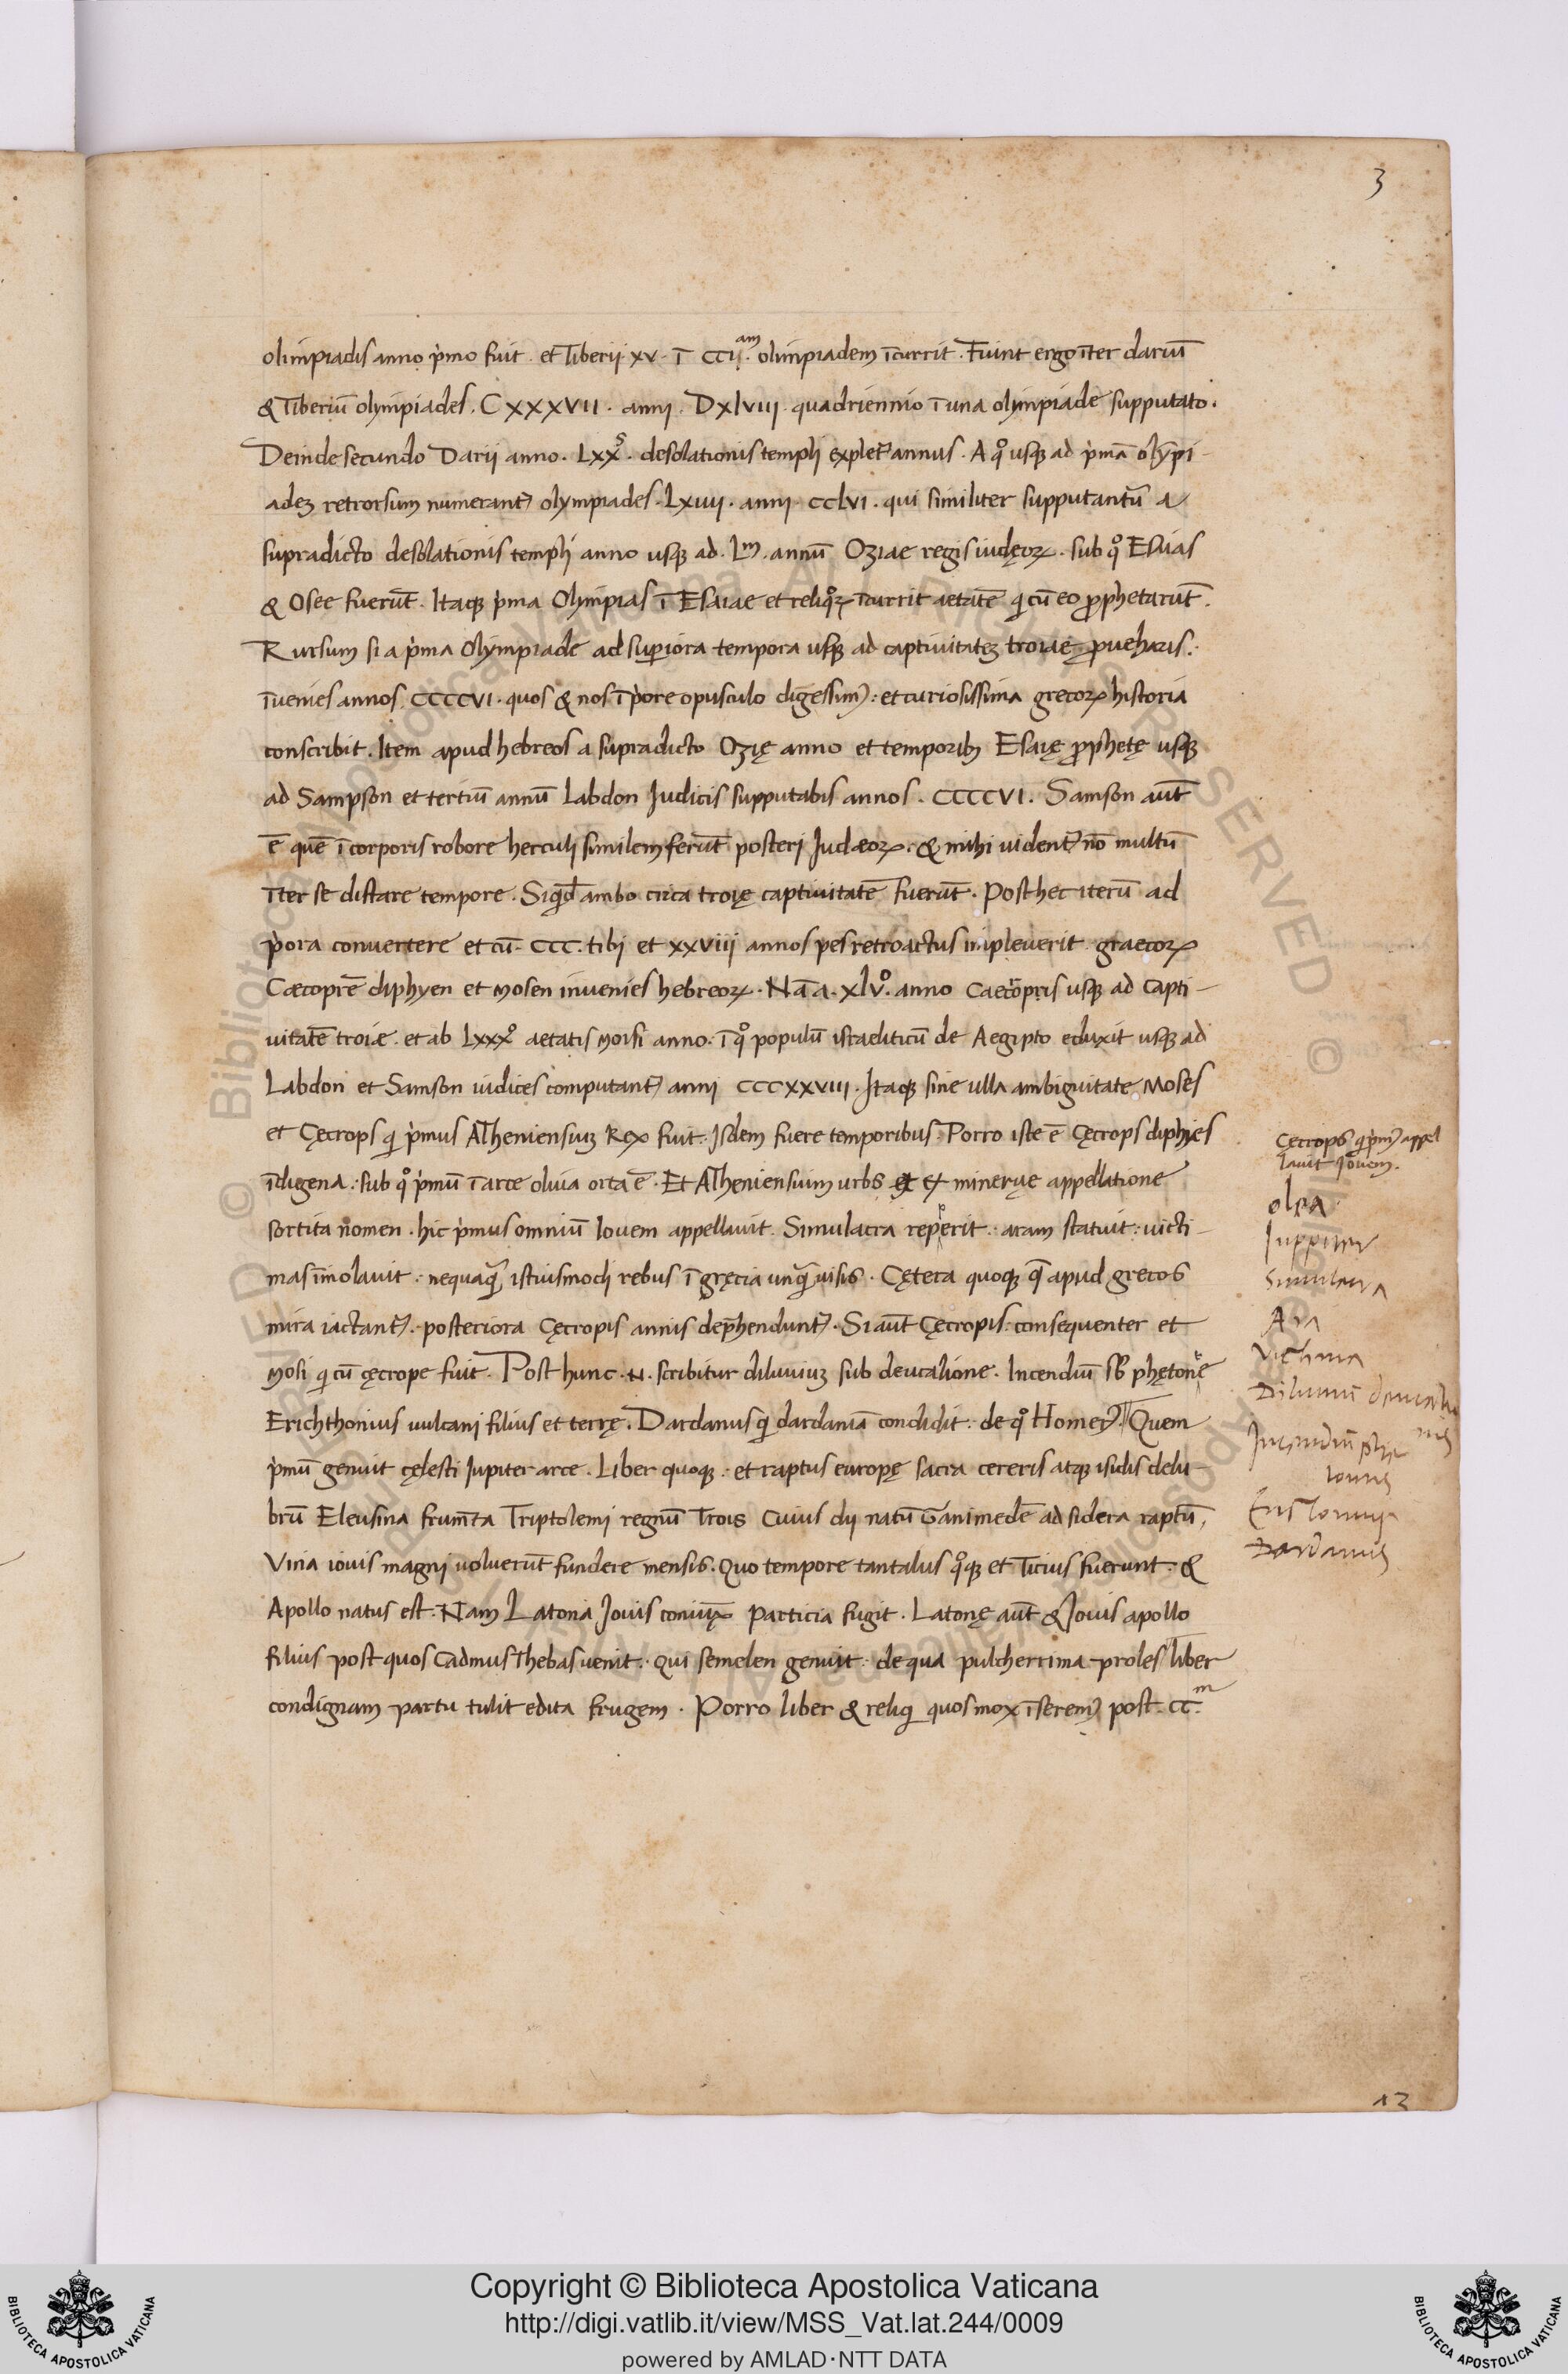 3
olimpiadis anno p̍mo fuit. et Tiberii. xv. ī CCI.am olimpiadem īcurrit. Fuint ergo īter dariū
& Tiberiū olympiades. CXXXVII. anni. DXlVIII. quadriennio ī una olympiade supputato.
Deinde secundo Darii anno. LXXs. desolationis templi expletr annus. A qo usqꝫ ad p̍mā olȳpi-
adeꝫ retrorsum numerantr olympiades. LXIIII. anni. CCLVI. qui similiter supputantur a
supradicto desolationis templi anno usqꝫ ad. Lm. annū Oziae regis iudęoꝝ. sub qo Esaias
& Osee fuerūt. Itaqꝫ p̍ma Olympias ī Esaiae et reliqoꝝ īcurrit aetatē qi cū eo ꝓphetarūt.
Rursum si a p̍ma Olympiade ad superiora tempora usqꝫ ad captiuitateꝫ troiae ꝓueharis.
īuenies annos. CCCCVI. quos & nos ī p̍ore opusculo digessimꝰ: et curiosissima grecoꝝ historia
conscribit. Item apud hebreos a supradicto Ozię anno et temporibꝫ Esaię ꝓphetę usqꝫ
ad Sampson et tertiū annū Labdon Judicis supputabis annos. CCCCVI. Samson aūt
ē quē ī corporis robore herculi similem ferūt posteri Judaeoꝝ. & mihi uidentr nō multū
īter se distare tempore. Siqd ambo circa troię captiuitatē fuerūt. Post hec iterū ad
p̍ora conuertere et cū. CCC. tibi et xxviii annos pes retroactus impleuerit. graecoꝝ
Caecoprē diphyen et Mosen inuenies hebreoꝝ. Nā a. xlvo. anno Caecopris usqꝫ ad Capti-
uitatē troiae. et ab LXXXo aetatis moisi anno. ī qo populū israeliticū de Aegipto eduxit usqꝫ ad
Labdon et Samson iudices computantr anni CCCXXVIII. Itaqꝫ sine ulla ambiguitate Moses
et Cęcrops qi p̍mus Atheniensiuꝫ Rex fuit. Isdem fuere temporibus. Porro iste ē Cęcrops diphies
īdigena: sub qo p̍mū ī arce oliua orta ē. Et Atheniensium urbs et ex mineruę appellatione
sortita nomen. hic p̍mus omniū Iovem appellauit. Simulacra repperit. aram statuit: uicti-
mas imolauit: nequaq̄ istiusmodi rebus ī gręcia unq̄ uisis. Cętera quoqꝫ q̄ apud grecos
mira iactantr. posteriora Cęcropis annis dep̄henduntr. Si aūt Cęcropis: consequenter et
Mosi qi cū cęcrope fuit. Post hunc. N. scribitur diluuiuꝫ sub deucalione. Incendiū sb̄ phętone
Erichthonius uulcani filius et terrę. Dardanus qi dardaniā condidit: de qo Homerꝰ. Quem
p̍mū genuit cęlesti Iupiter arce. Liber quoqꝫ: et raptus europę sacra cereris atqꝫ isidis delu-
brū Eleusina frum̄ta Triptolemi regnū Trois Cuius dii natū Ganimedē ad sidera raptū,
Vina iouis magni uoluerūt fundere mensis. Quo tempore tantalus qoqꝫ et Ticius fuerunt. &
Apollo natus est. Nam Latona Jouis coniux Particia fugit. Latonę aūt & Jouis apollo
filius post quos Cadmus Thebas uenit. qui semelen genuit: de qua pulcherrima proles liber
condignam partu tulit edita frugem. Porro liber & reliqi quos mox īseremꝰ post. CC.m
Cęcrops qi p̍mꝰ appel
lauit Iovem.
olea
Iuppiter
Simulacra
Ara
Victima
Diluuiū deucalio
nis
Incendiū phe
tontis
Dardanus
13
Copyright © Biblioteca Apostolica Vaticana
http://digi.vatlib.it/view/MSS_Vat.lat.244/0009
powered by AMLAD·NTT DATA
BIBLIOTECA APOSTOLICA VATICANA
BIBLIOTECA APOSTOLICA VATICANA